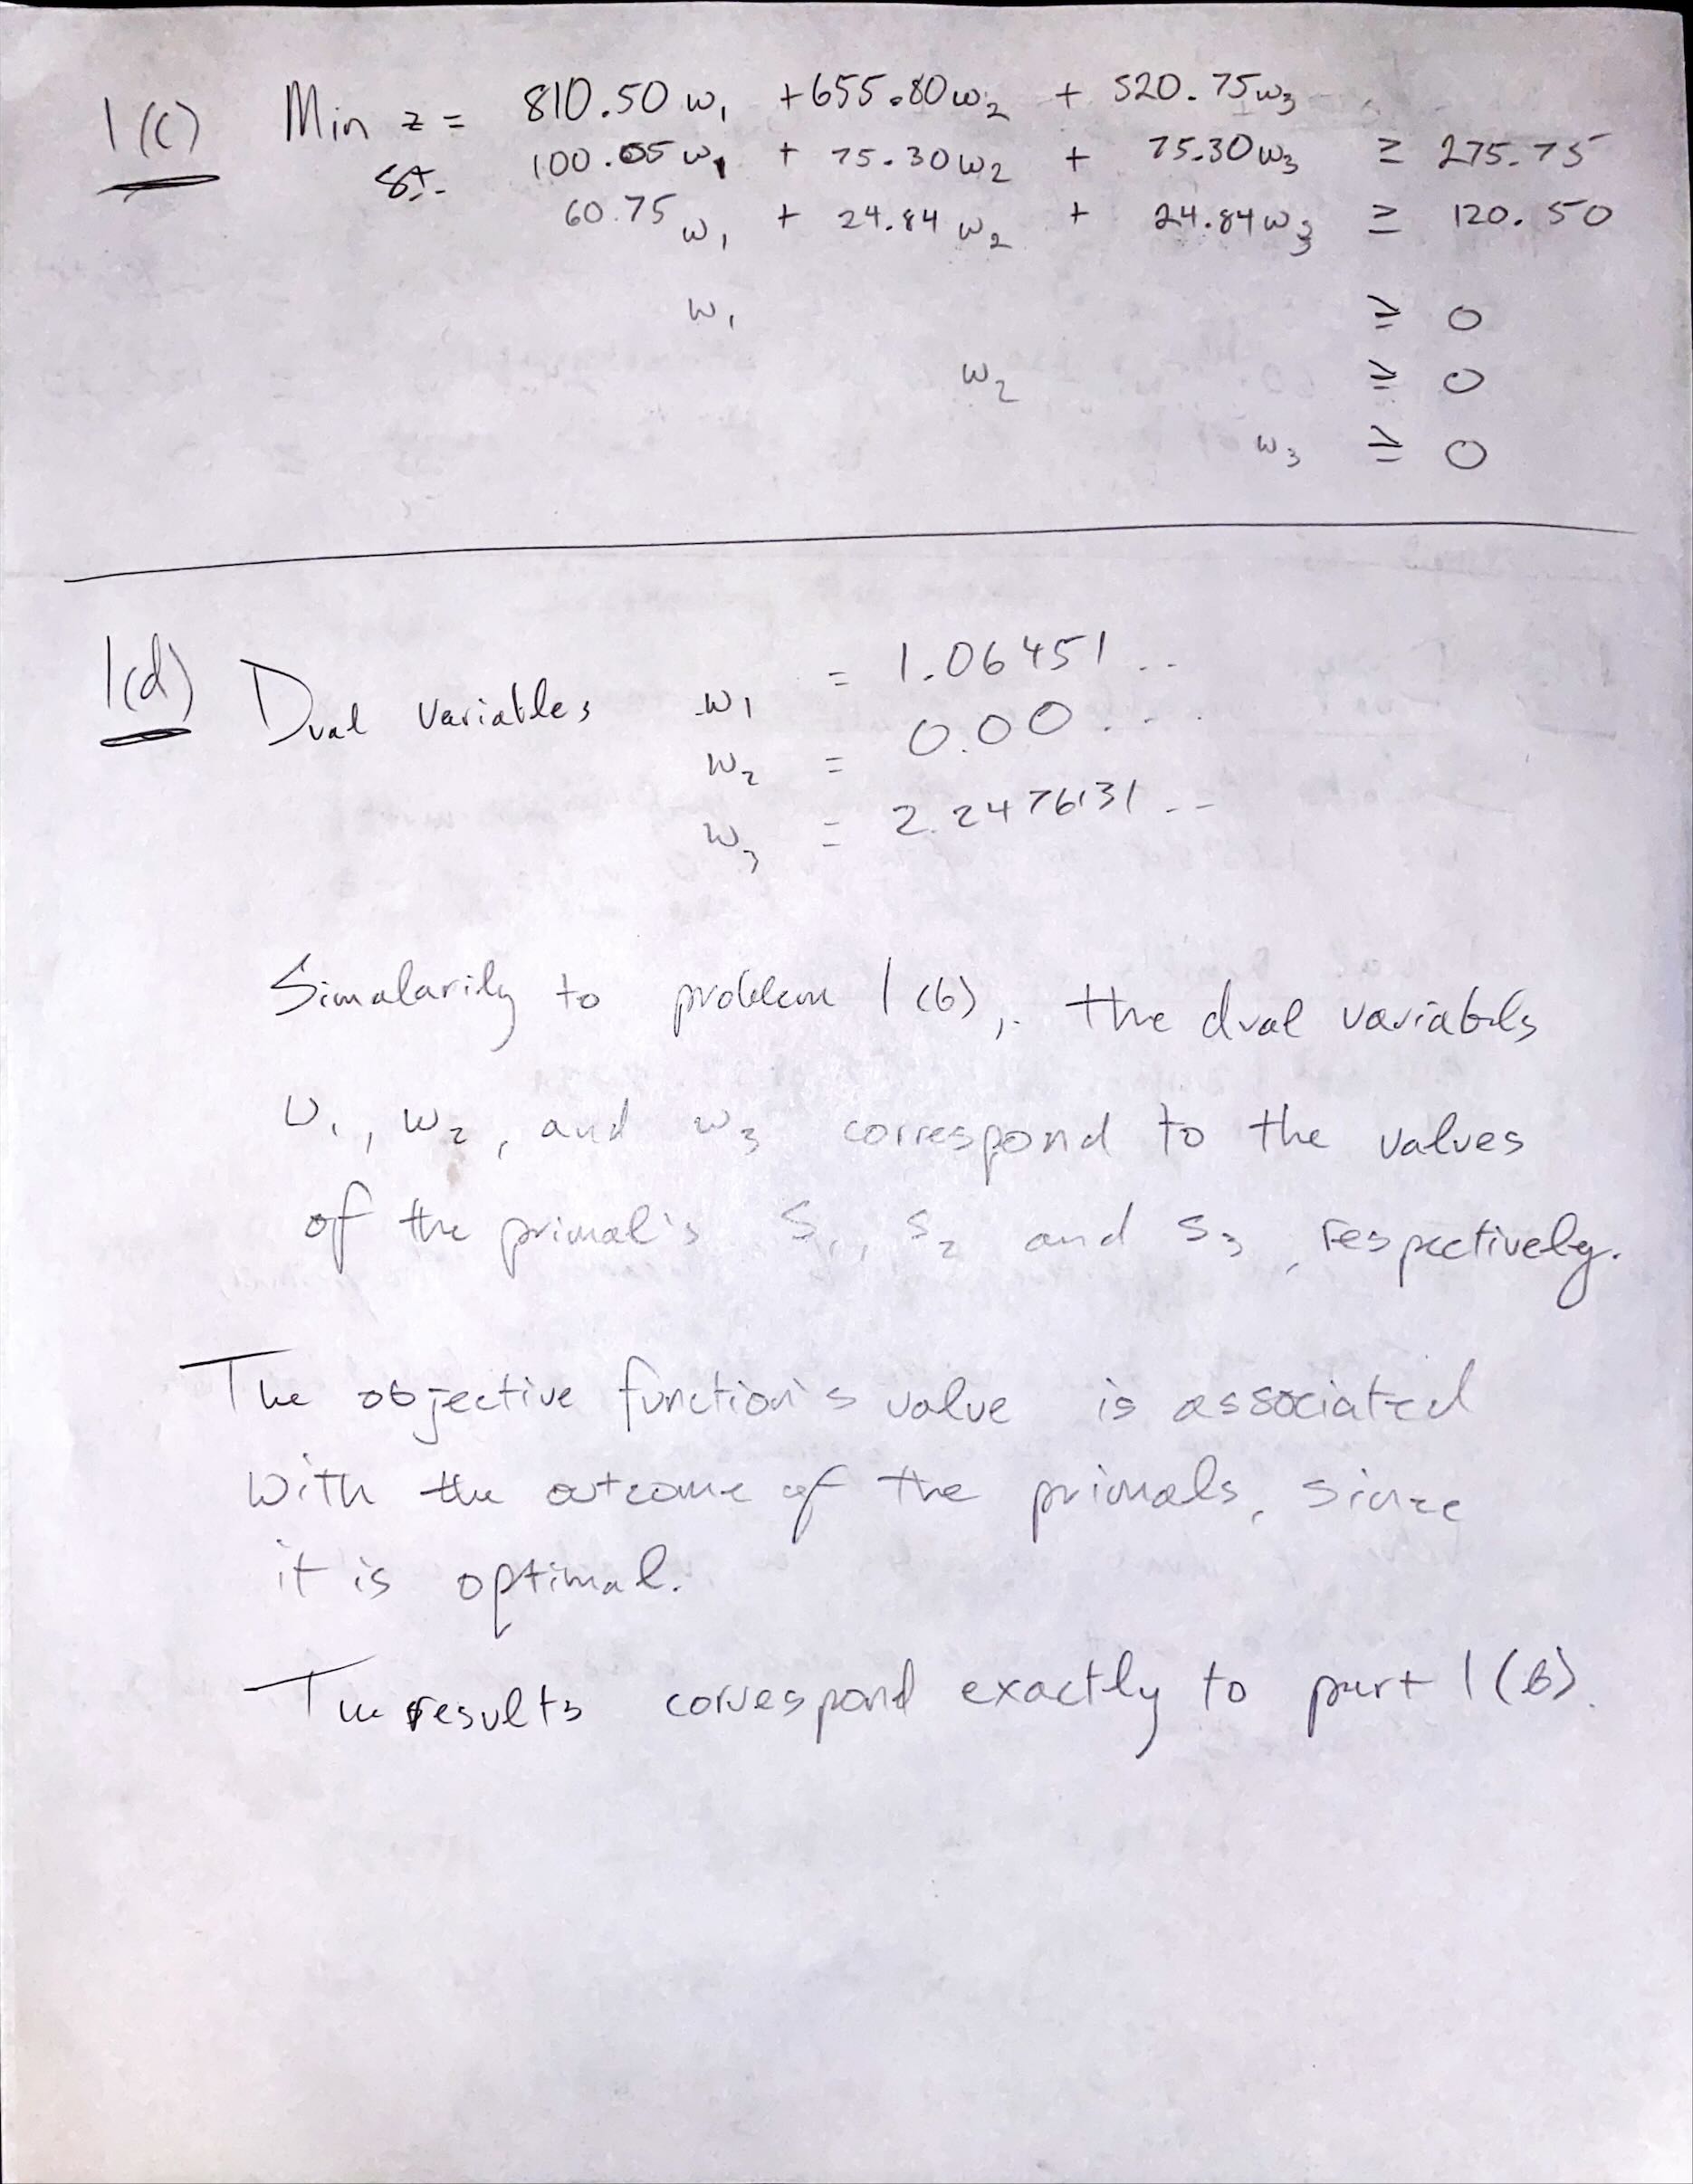 1(c) Min z = 810.50 w₁ + 655.80 w₂ + 520.75 w₃
st. 100.05 w₁ + 75.30 w₂ + 75.30 w₃ ≥ 275.75
60.75 w₁ + 24.84 w₂ + 24.84 w₃ ≥ 120.50
w₁ ≥ 0
w₂ ≥ 0
w₃ ≥ 0
1(d) Dual variables w₁ = 1.06451...
w₂ = 0.00...
w₃ = 2.2476131...
Simalarily to problem 1(b), the dual variabls
w₁, w₂, and w₃ correspond to the values
of the primal's S₁, S₂ and S₃, respectively.
The objective function's value is associated
with the outcome of the primals, since
it is optimal.
The results correspond exactly to part 1(b).